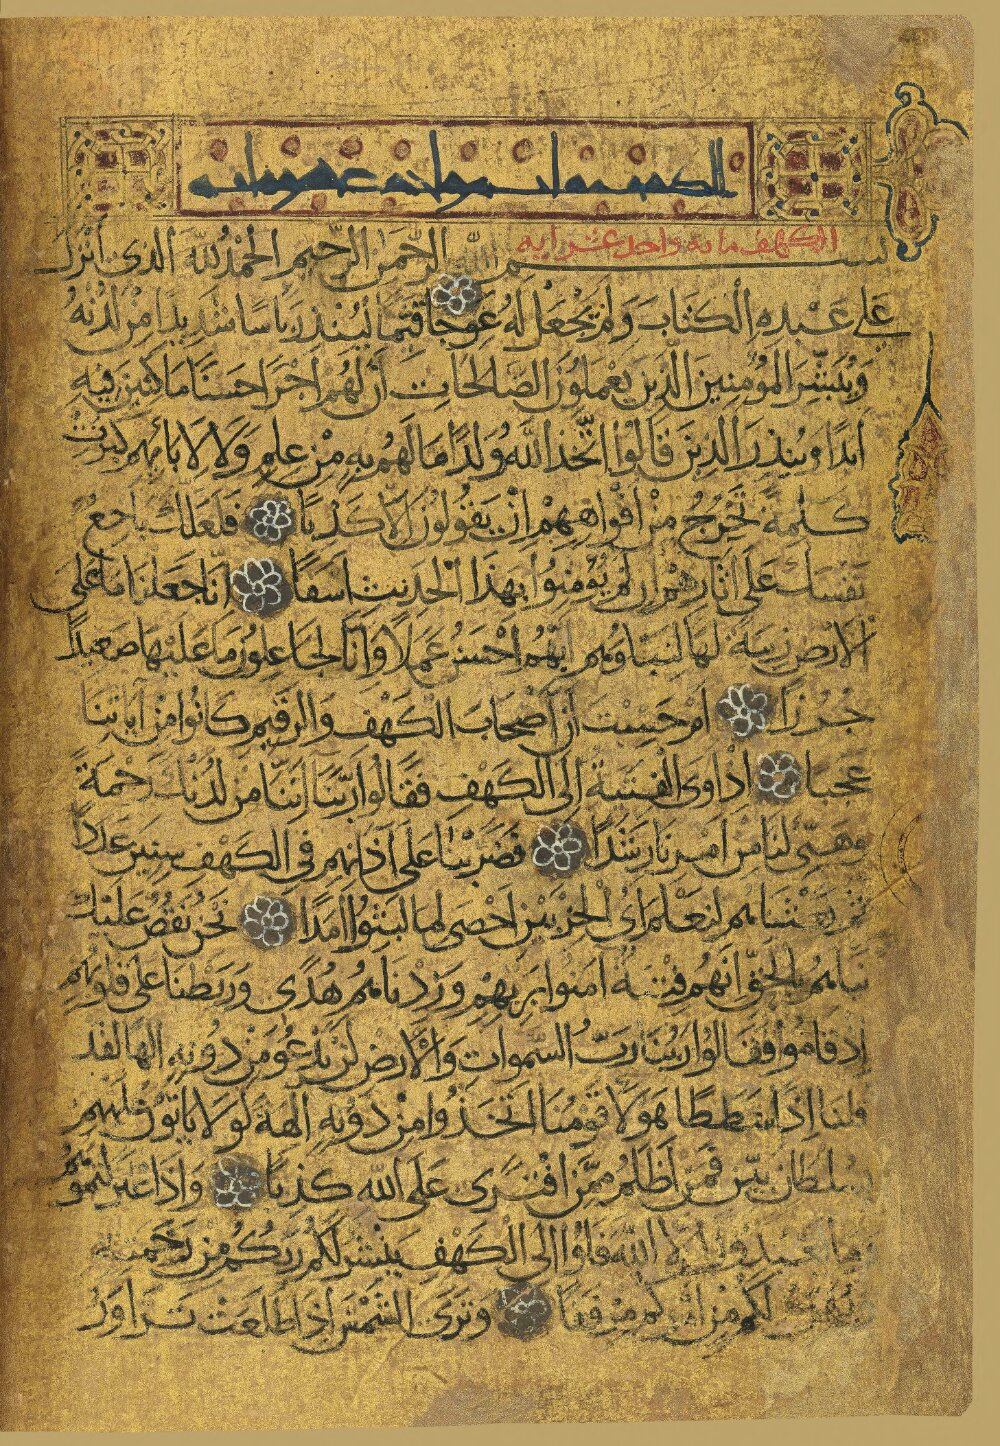 الكهف
الكهف مايه واحد عشر ايه
بسم الله الرحمن الرحيم الحمد لله الذي انزل
على عبده الكتاب ولم يجعل له عوجا قيما لينذر باسا شديدا من لدنه
ويبشر المؤمنين الذين يعملون الصالحات ان لهم اجرا حسنا ماكثين فيه
ابدا وينذر الذين قالوا اتخذ الله ولدا ما لهم به من علم ولا لابائهم كبرت
كلمة تخرج من افواههم ان يقولون الا كذبا فلعلك باخع
نفسك على اثارهم ان لم يؤمنوا بهذا الحديث اسفا انا جعلنا ما على
الارض زينة لها لنبلوهم ايهم احسن عملا وانا لجاعلون ما عليها صعيدا
جرزا ام حسبت ان اصحاب الكهف والرقيم كانوا من اياتنا
عجبا اذ اوى الفتية الى الكهف فقالوا ربنا اتنا من لدنك رحمة
وهيئ لنا من امرنا رشدا فضربنا على اذانهم في الكهف سنين عددا
ثم بعثناهم لنعلم اي الحزبين احصى لما لبثوا امدا نحن نقص عليك
نباهم بالحق انهم فتية امنوا بربهم وزدناهم هدى وربطنا على قلوبهم
اذ قاموا فقالوا ربنا رب السموات والارض لن ندعو من دونه الها لقد
قلنا اذا شططا هولا قومنا اتخذوا من دونه الهة لولا ياتون عليهم
بسلطان بين فمن اظلم ممن افترى على الله كذبا واذ اعتزلتموهم
وما يعبدون الا الله فاووا الى الكهف ينشر لكم ربكم من رحمته
ويهيئ لكم من امركم مرفقا وترى الشمس اذا طلعت تزاور